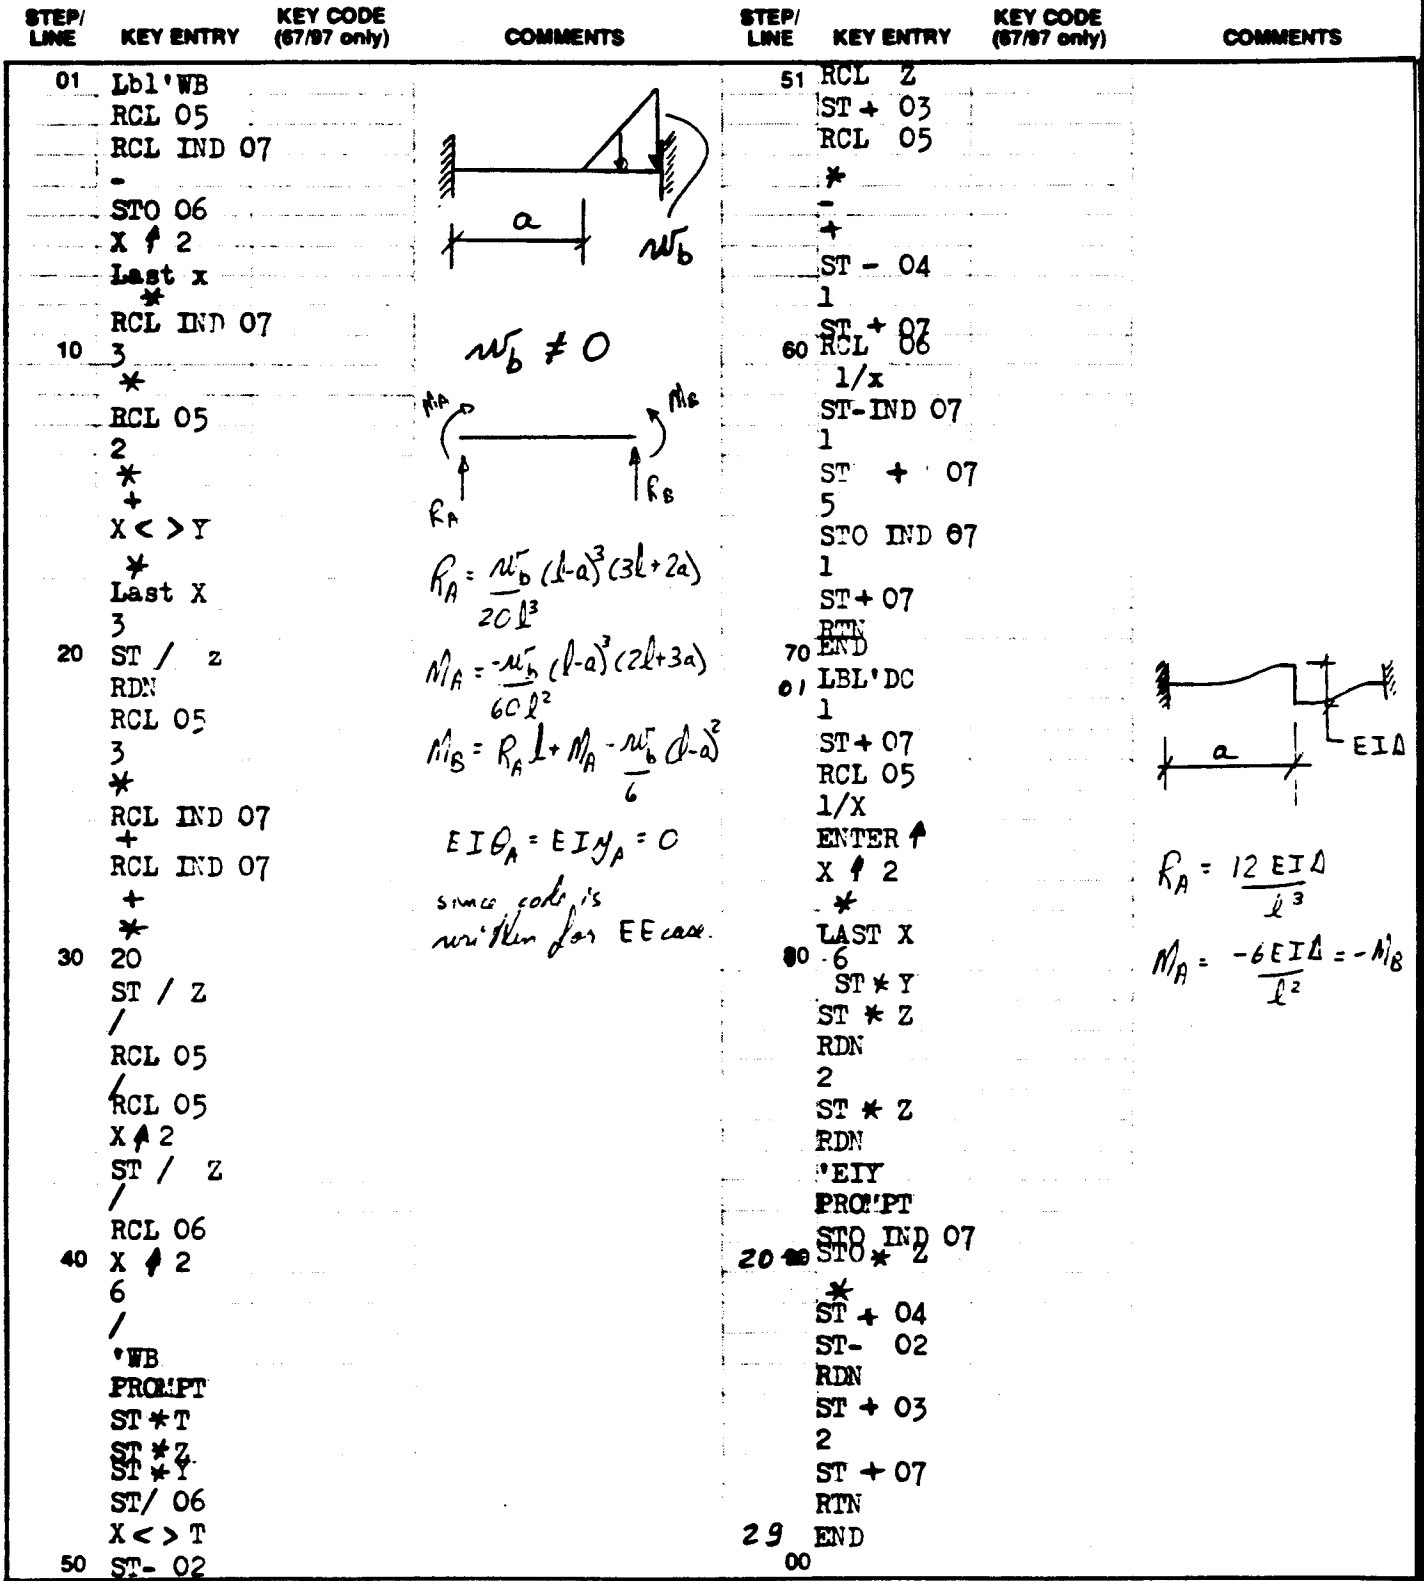 STEP/ LINE KEY ENTRY KEY CODE (67/97 only) COMMENTS STEP/ LINE KEY ENTRY KEY CODE (67/97 only) COMMENTS
01 Lbl'WB
RCL 05
RCL IND 07
-
STO 06
X ↑ 2
Last x
*
RCL IND 07
10 3
*
RCL 05
2
*
+
X < > Y
*
Last X
3
20 ST / z
RDN
RCL 05
3
*
RCL IND 07
+
RCL IND 07
+
*
30 20
ST / Z
/
RCL 05
/
RCL 05
X ↑ 2
ST / Z
/
RCL 06
40 X ↑ 2
6
/
'WB
PROMPT
ST * T
ST * Z
ST * Y
ST/ 06
X < > T
50 ST- 02
a
w_b
w_b ≠ 0
M_A
M_B
R_A
R_B
R_A = w_b/20l³ (l-a)³ (3l+2a)
M_A = -w_b/60l² (l-a)³ (2l+3a)
M_B = R_A l + M_A - w_b/6 (l-a)²
EIθ_A = EIy_A = 0
since code is
written for EE case.
51 RCL Z
ST + 03
RCL 05
*
-
+
ST - 04
1
ST + 07
60 RCL 06
1/x
ST-IND 07
1
ST + 07
5
STO IND 07
1
ST + 07
RTN
70 END
01 LBL'DC
1
ST + 07
RCL 05
1/X
ENTER ↑
X ↑ 2
*
LAST X
6
ST * Y
ST * Z
RDN
2
ST * Z
RDN
'EIY
PROMPT
STO IND 07
20 STO * Z
*
ST + 04
ST- 02
RDN
ST + 03
2
ST + 07
RTN
29 END
00
a
EIΔ
R_A = 12 EIΔ/l³
M_A = -6EIΔ/l² = -M_B